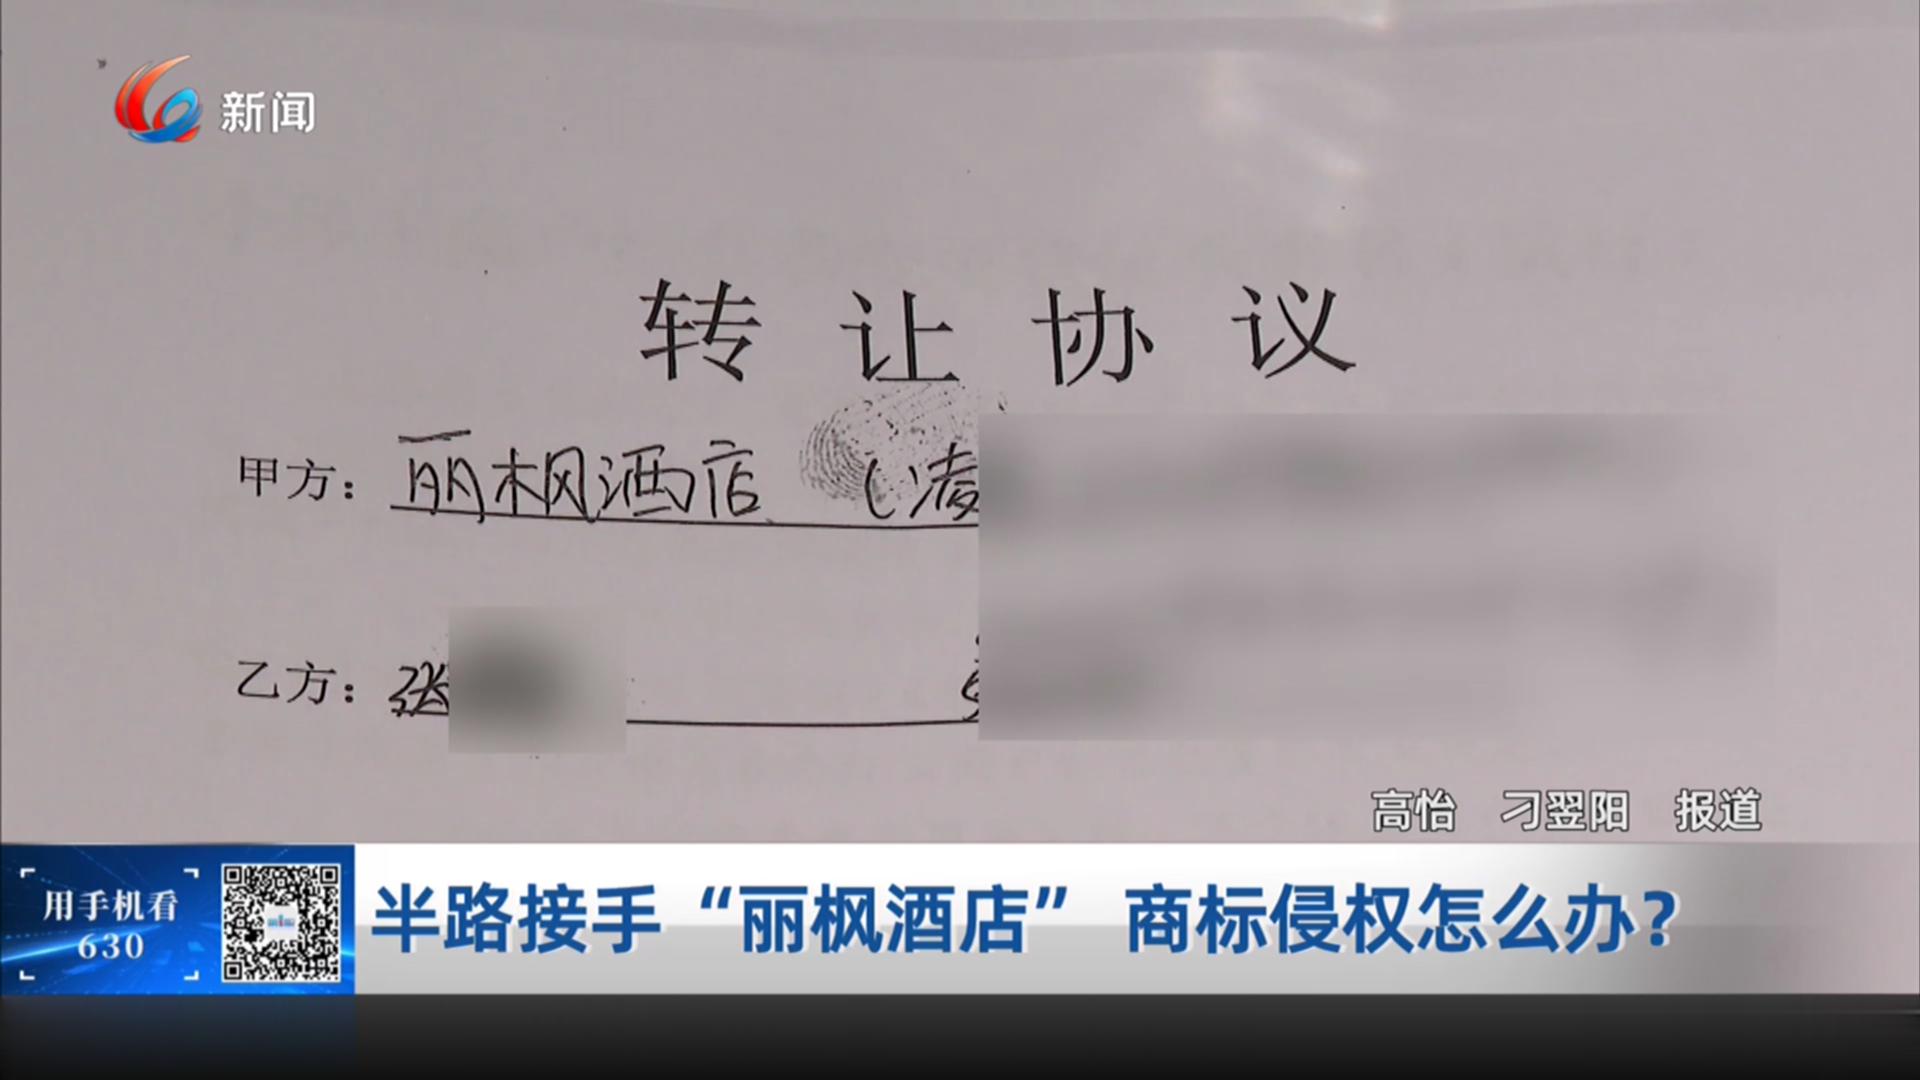 新闻
转让协议
甲方：丽枫酒店（凌
乙方：张
高怡 刁翌阳 报道
用手机看
630
半路接手“丽枫酒店” 商标侵权怎么办？